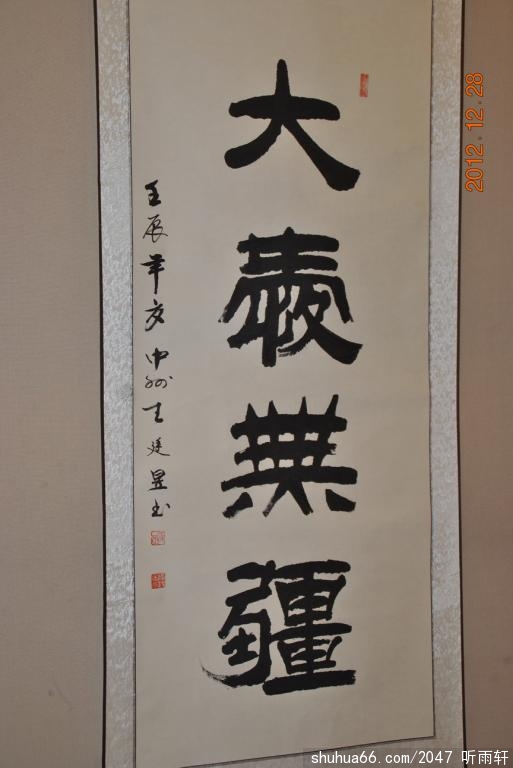 大愛無疆
壬辰年夏中州王廷昱书
2012.12.28
shuhua66.com/2047 听雨轩